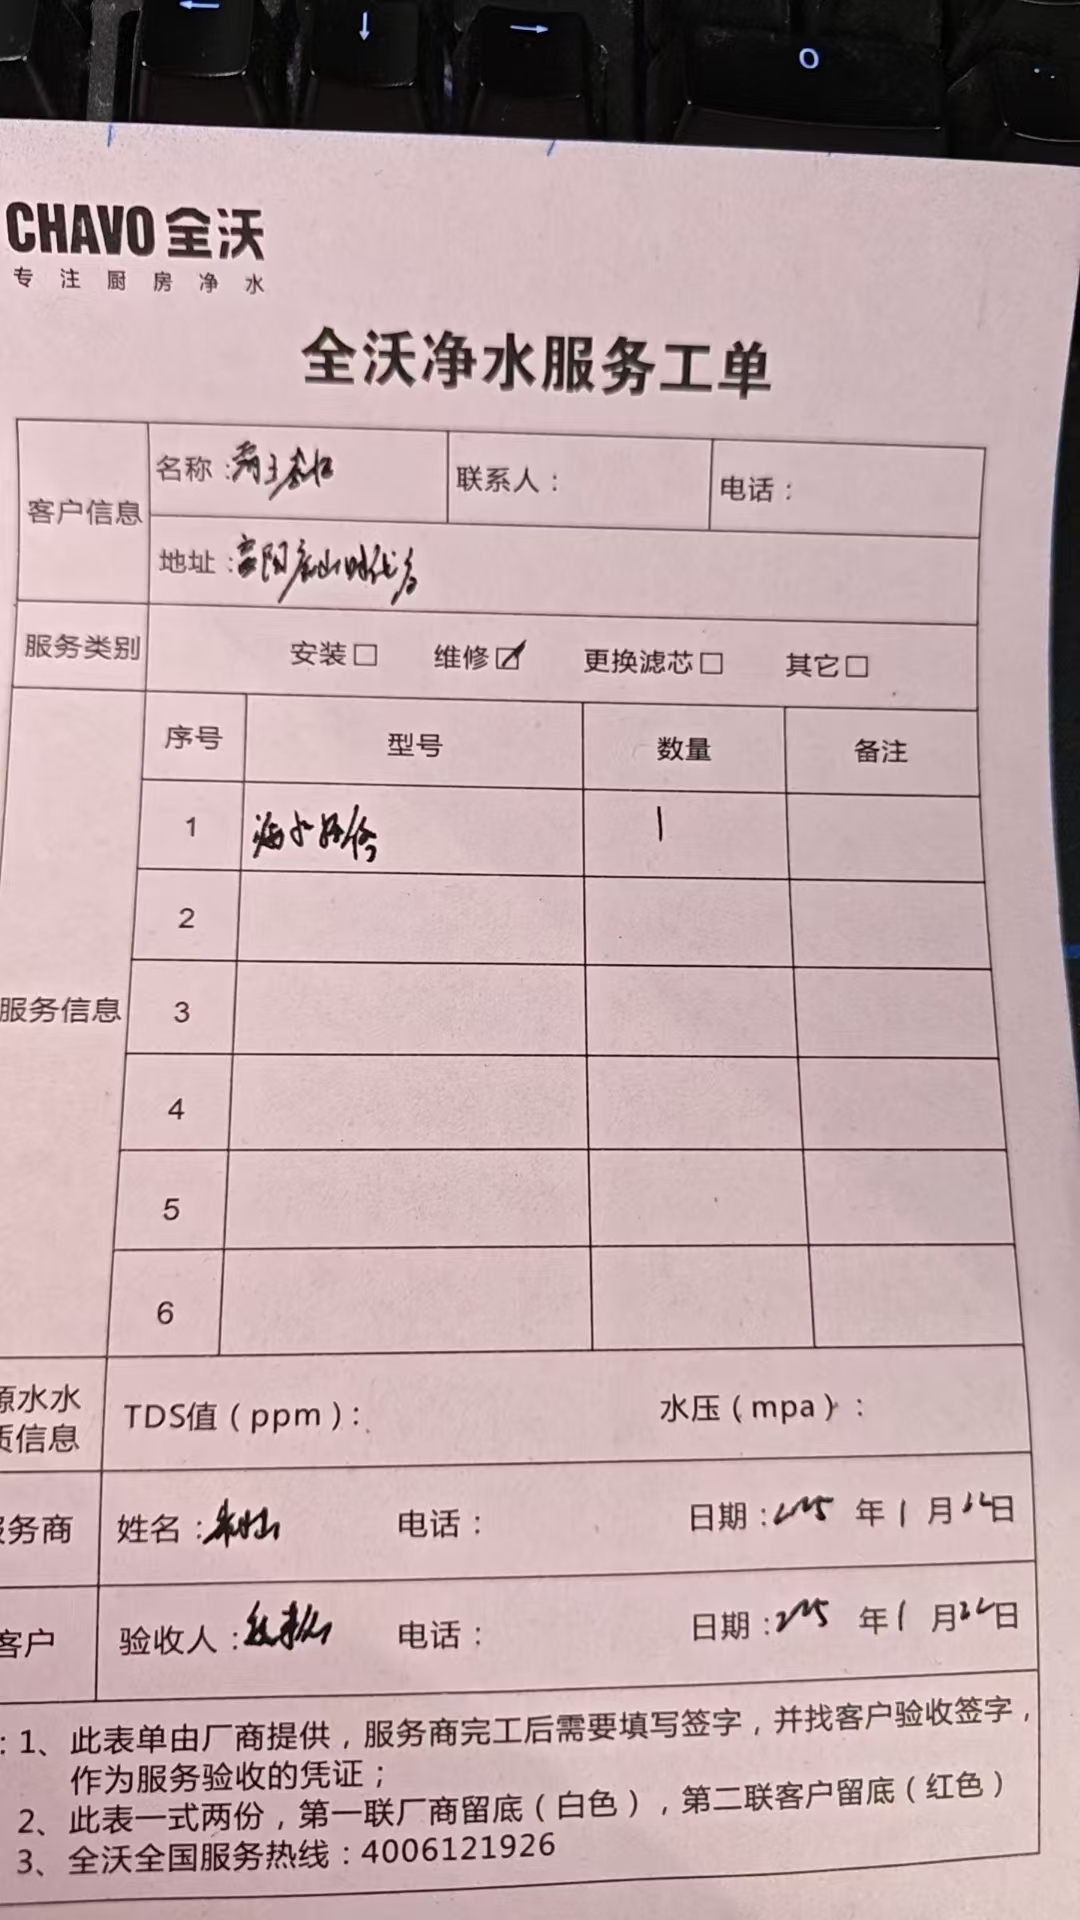 CHAVO 全沃
专注厨房净水
全沃净水服务工单
客户信息
名称: 联系人: 电话:
地址:富阳
服务类别 安装□ 维修☑ 更换滤芯□ 其它□
服务信息
序号 型号 数量 备注
1 1
2
3
4
5
6
源水水
质信息
TDS值(ppm): 水压(mpa):
服务商 姓名: 电话: 日期:2025 年 1 月 日
客户 验收人: 电话: 日期:2025 年 1 月 日
:1、此表单由厂商提供,服务商完工后需要填写签字,并找客户验收签字,
作为服务验收的凭证;
2、此表一式两份,第一联厂商留底(白色),第二联客户留底(红色)
3、全沃全国服务热线:4006121926